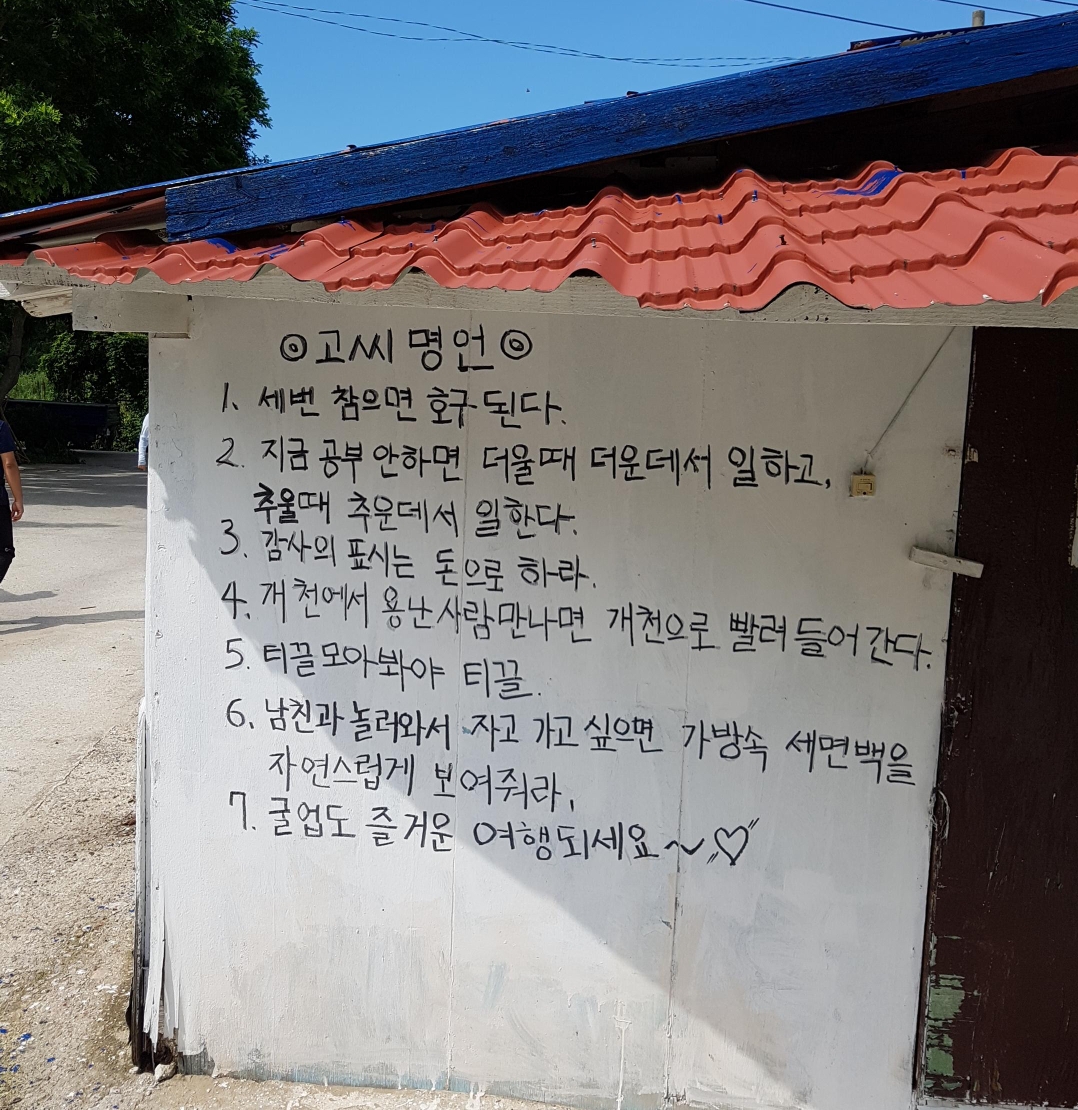 ◎고씨 명언◎
1. 세번 참으면 호구된다.
2. 지금 공부 안하면 더울때 더운데서 일하고,
추울때 추운데서 일한다.
3. 감사의 표시는 돈으로 하라.
4. 개천에서 용난사람만나면 개천으로 빨려들어간다.
5. 티끌모아봐야 티끌.
6. 남친과 놀러와서 자고 가고 싶으면 가방속 세면백을
자연스럽게 보여줘라.
7. 굴업도 즐거운 여행되세요~♡